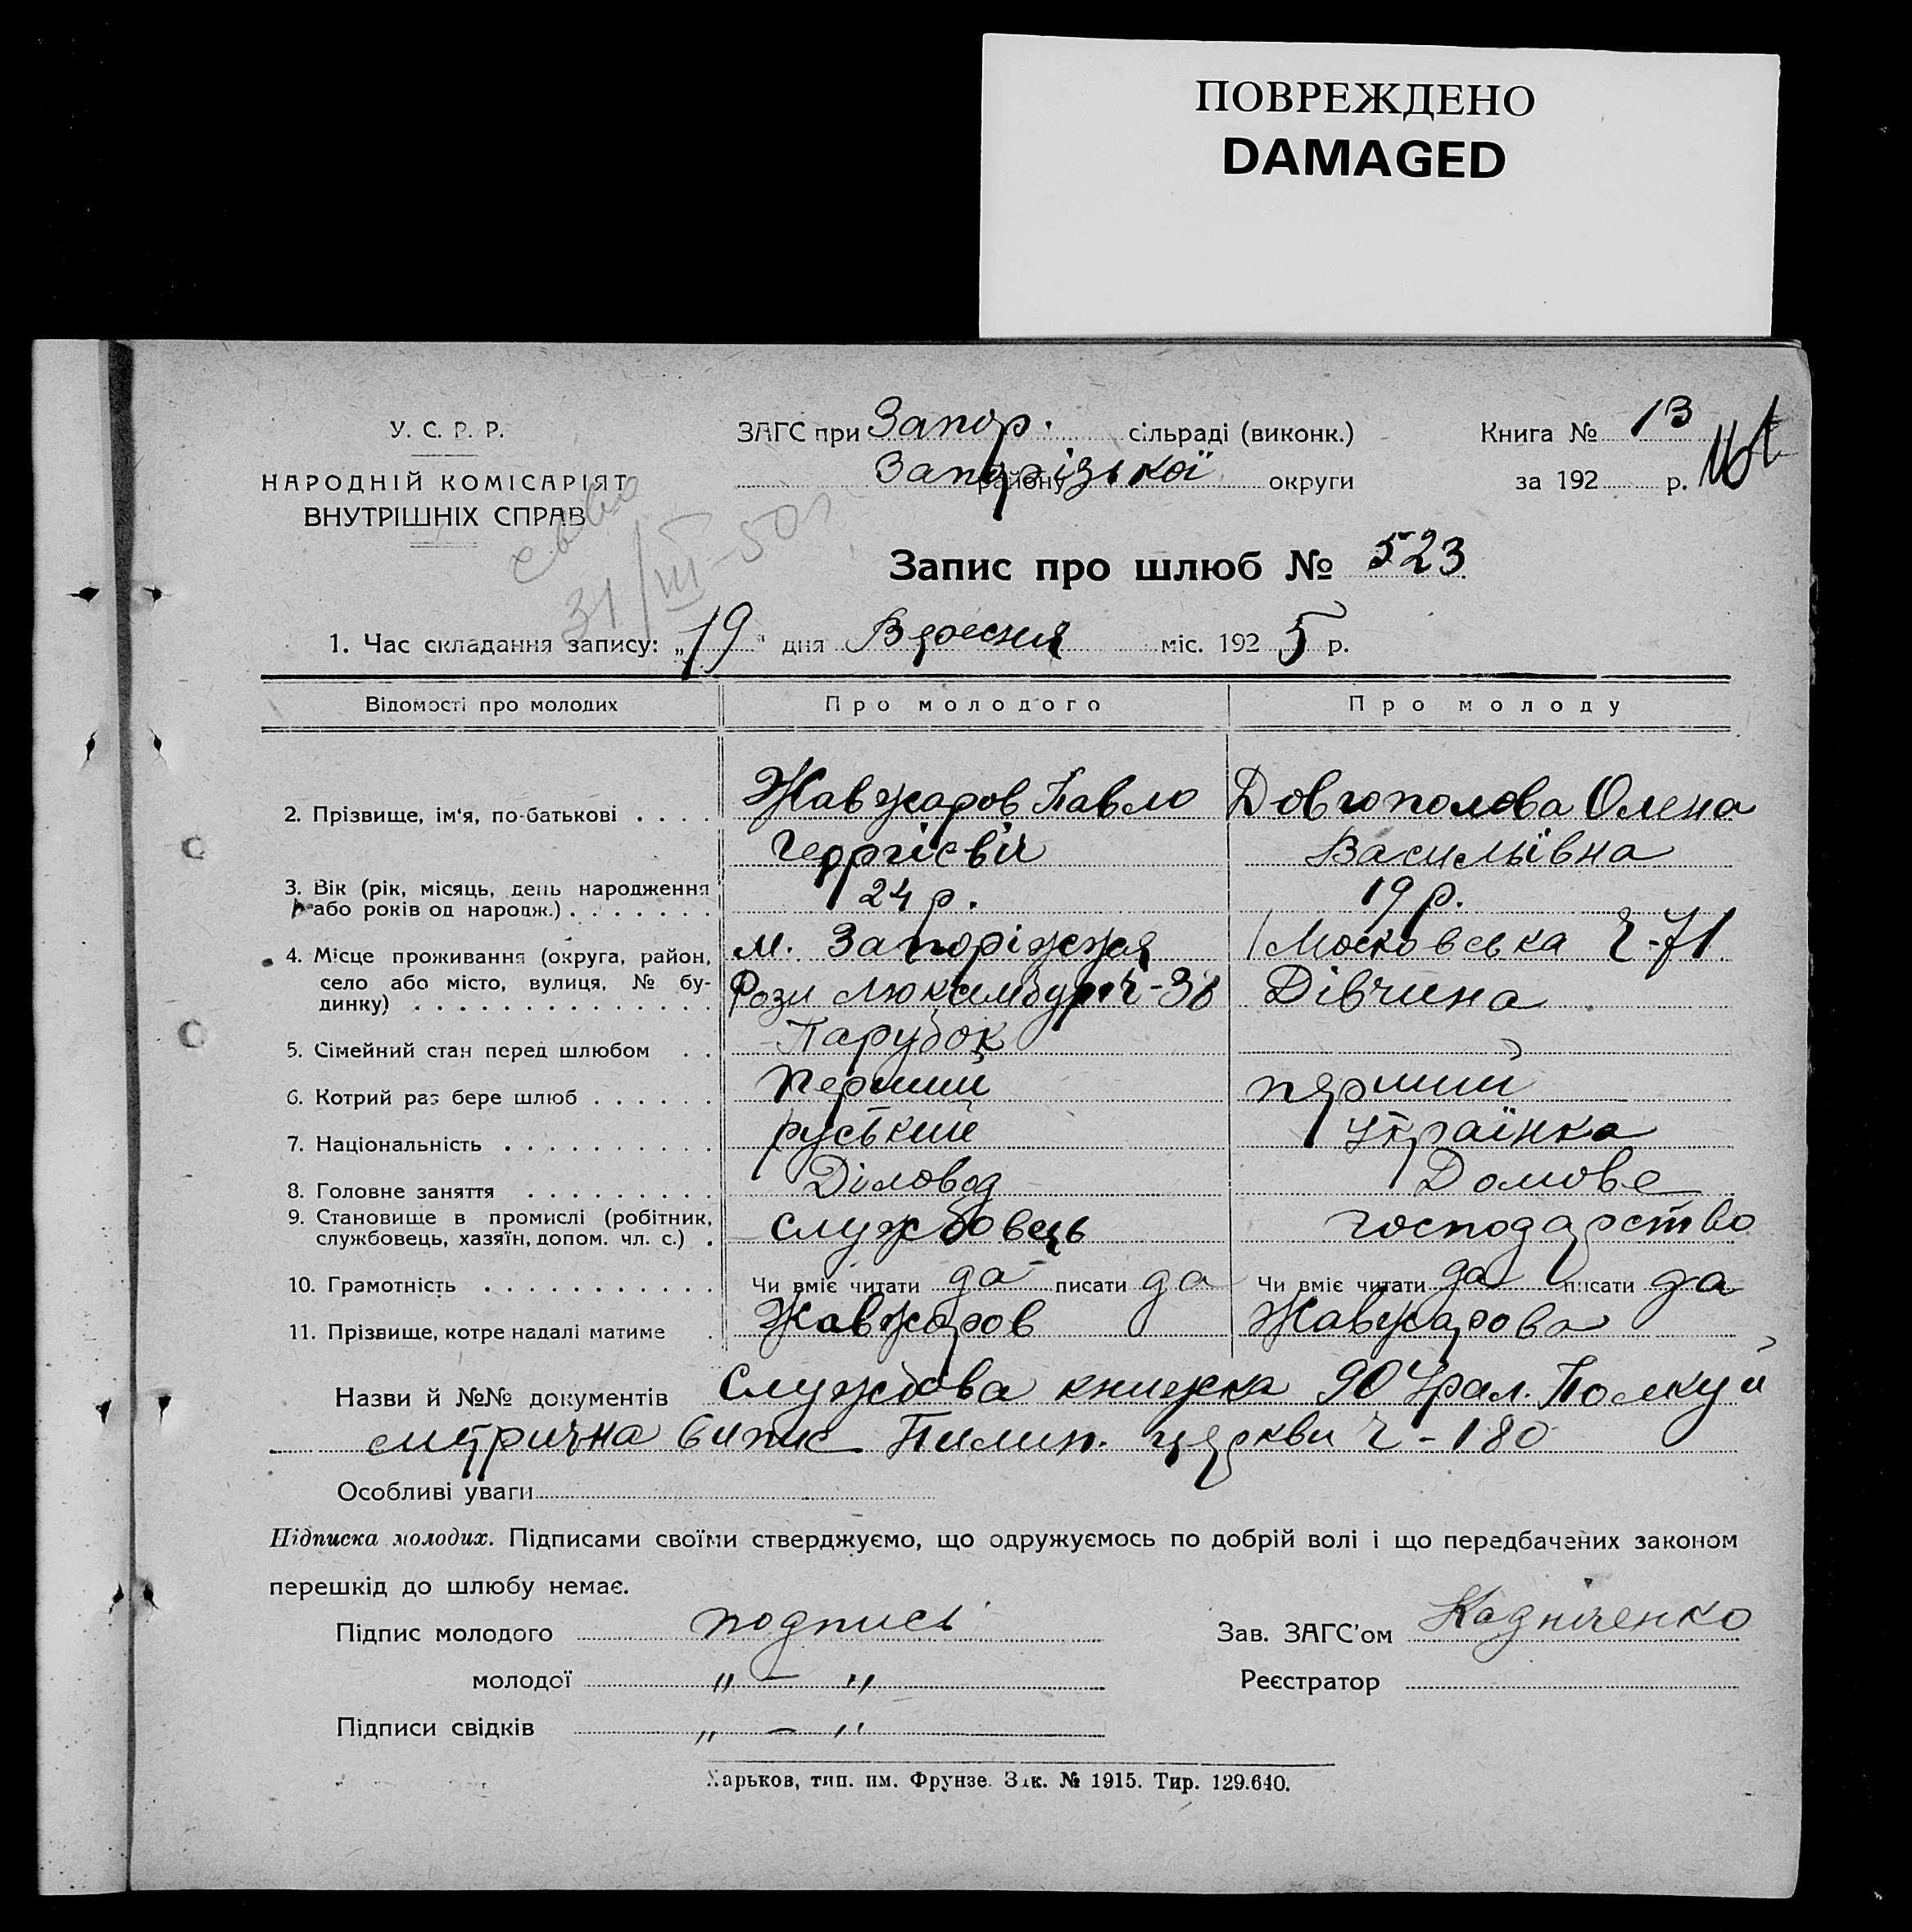 ПОВРЕЖДЕНО
DAMAGED
У. С. Р. Р.
НАРОДНІЙ КОМІСАРІЯТ
ВНУТРІШНІХ СПРАВ
31/III-50
ЗАГС при Запор. сільраді (виконк.)
району Запорізької округи
Книга № 13
за 192 р.
Запис про шлюб № 523
1. Час складання запису: „19“ дня Вересня міс. 1925 р.
Відомості про молодих Про молодого Про молоду
2. Прізвище, ім'я, по-батькові . . . . Жавжаров Павло Довгополова Олена
Георгієвіч Васильївна
3. Вік (рік, місяць, день народження
або років од народж.) . . . . . . . 24 р. 19 р.
4. Місце проживання (округа, район, м. Запоріжжя Московська Ч-71
село або місто, вулиця, № бу-
динку) . . . . . . . . . . . . . . Рози Люксимбург Ч-38 Дівчина
5. Сімейний стан перед шлюбом . . Парубок
6. Котрий раз бере шлюб . . . . . . Перший перший
7. Національність . . . . . . . . . . руський українка
8. Головне заняття . . . . . . . . . Діловод Домове
9. Становище в промислі (робітник,
службовець, хазяїн, допом. чл. с.) . службовець господарство
10. Грамотність . . . . . . . . . . . Чи вміє читати да писати да Чи вміє читати да писати да
11. Прізвище, котре надалі матиме . Жавжаров Жавжарова
Назви й №№ документів Службова книжка 90 Урал. Полку й
метрична випис Пилип. церкви Ч-180
Особливі уваги
Підписка молодих. Підписами своїми стверджуємо, що одружуємось по добрій волі і що передбачених законом
перешкід до шлюбу немає.
Підпис молодого подписі
Зав. ЗАГС'ом
молодої „ — „
Реєстратор
Підписи свідків „ — „
Харьков, тип. им. Фрунзе. Зак. № 1915. Тир. 129.640.